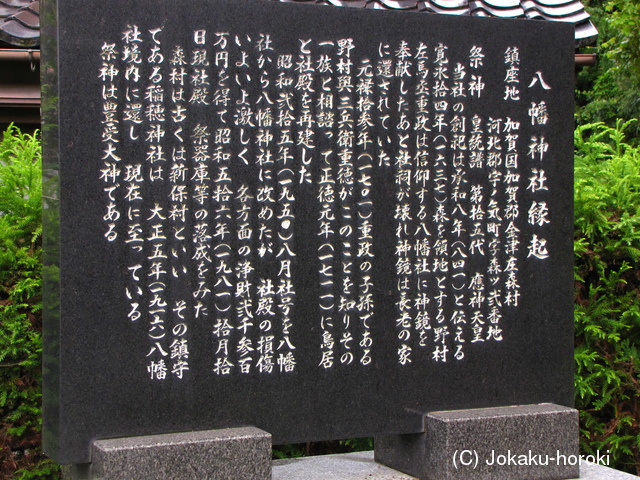 八幡神社縁起
鎮座地 加賀国加賀郡金津庄森村
河北郡宇ノ気町字森ッ弐番地
祭神 皇統譜 第拾五代 應神天皇
当社の創祀は承和八年（八四一）と伝える
寛永拾四年（一六三七）森を領地とする野村
左馬丞重政は信仰する八幡神社に神鏡を
奉献したあと社祠が壊れ神鏡は長老の家
に還されていた
元禄拾参年（一七〇一）重政の子孫である
野村與三兵衛重徳がこのことを知りその
一族と相談って正徳元年（一七一一）に鳥居
と社殿を再建した
昭和弐拾五年（一九五〇）八月社号を八幡
社から八幡神社に改めたが 社殿の損傷
いよいよ激しく 各方面の浄財弐千参百
万円を得て昭和五拾六年（一九八一）拾月拾
日現社殿 祭器庫等の落成をみた
森村は古くは新保村といい その鎮守
である稲穂神社は 大正五年（一九一六）八幡
社境内に還し 現在に至っている
祭神は豊受大神である
(C) Jokaku-horoki